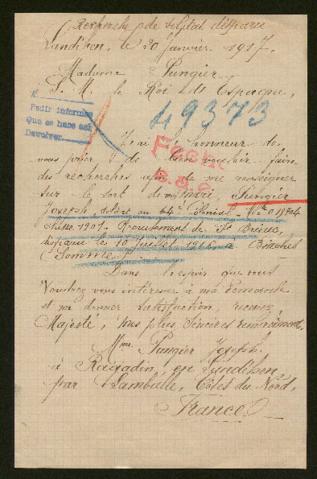 (Recherche de soldat disparu
Landéhen, le 20 Janvier 1917.
Madame Pungier
S. M. le Roi d'Espagne,
49373
Pedir informe
Que se hace así
Devolver.
J'ai l'honneur de
vous prier de bien vouloir faire
des recherches afin de me renseigner
sur le sort de mari, Pungier
Joseph soldat au
classe 1901. Recrutement de St Brieuc,
disparu le 10 Juillet 1916 à
(Somme).
Dans l'espoir que vous
voudrez vous intéresser à ma demande
et me donner satisfaction, recevez
Majesté, mes plus sincères remerciements.
Mme Pungier Joseph
à en Landéhen
par Lamballe, Côtes du Nord,
France